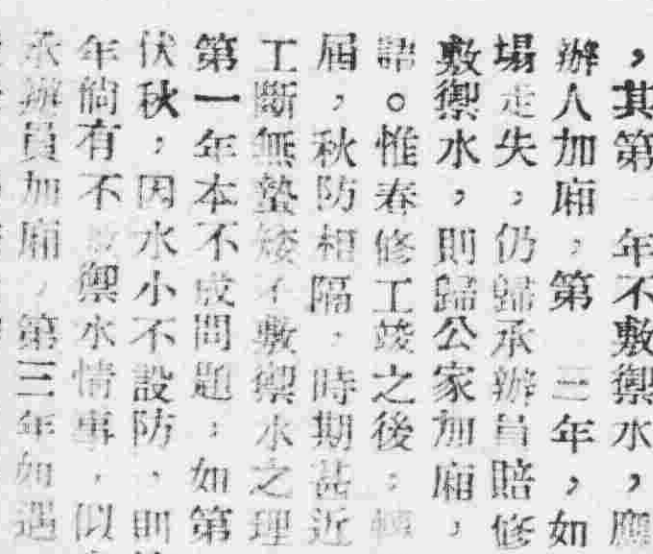 ，其第一年不敷禦水，應
辦人加廂，第三年，如
場走失，仍歸承辦員賠修
敷禦水，則歸公家加廂，
語。惟春修工竣之後，
屆，秋防相隔，時期甚近
工斷無蟄矮不敷禦水之理
第一年本不成問題；如第
伏秋，因水小不設防，則
年倘有不敷禦水情事，似
承辦員加廂，第三年如遇